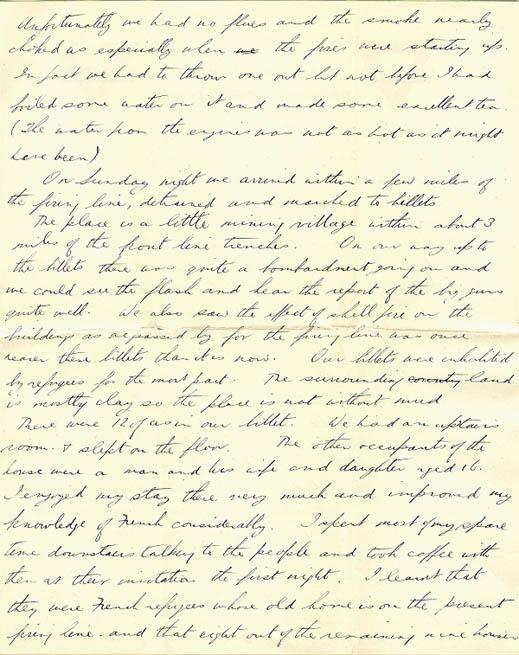 Unfortunately we had no flues and the smoke nearly
choked us especially when we the fires were starting up.
In fact we had to throw one out but not before I had
boiled some water on it and made some excellent tea.
(The water from the engines was not as hot as it might
have been)
On Sunday night we arrived within a few miles of
the firing line, detrained and marched to billets
The place is a little mining village within about 3
miles of the front line trenches. On our way up to
the billets there was quite a bombardment going on and
we could see the flash and hear the report of the big guns
quite well. We also saw the effect of shell fire on the
buildings as we passed by for the firing line was once
nearer these billets than it is now. Our billets were inhabited
by refugees for the most part. The surrounding country land
is mostly clay so the place is not without mud
There were 12 of us in our billet. We had an upstairs
room & slept on the floor. The other occupants of the
house were a man and his wife and daughter aged 16.
I enjoyed my stay there very much and improved my
knowledge of French considerably. I spent most of my spare
time downstairs talking to the people and took coffee with
them at their invitation the first night. I learnt that
they were French refugees whose old home is on the present
firing line. and that eight out of the remaining nine houses